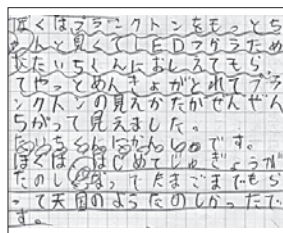 ぼくはプランクトンをもっとち
ゃんと見くてLEDつかうため
にたいちくんにおしえてもら
てやっとめんきょがとれてプラ
ンクトンの見えかたがぜんぜん
ちがって見えました。
たいちくんにかんしゃです。
ぼくは、はじめてじゅぎょうが
たのしくなってたまごまでもら
って天国のようにたのしかったで
す。